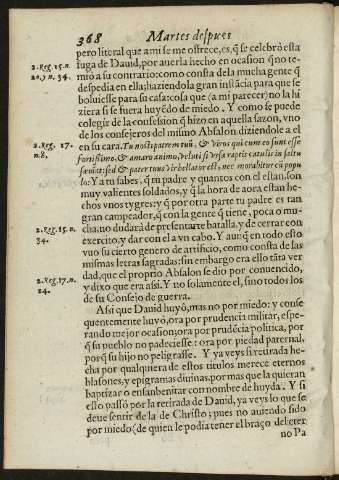 368 Martes despues
pero literal que ami se me ofrece, es, q̃ se celebrò esta
2. Reg. 15. n. 20. y n. 34.
fuga de Dauid, por auerla hecho en ocasion q̃ no te-
mio a su contrario: como consta de la mucha gente q̃
despedia en ella; haziendola gran instãcia para que se
boluiesse para su casa: cosa que (a mi parecer) no la hi
ziera si se fuera huyẽdo de miedo. Y como se puede
colegir de la confession q̃ hizo en aquella sazon, vno
de los consejeros del mismo Absalon diziendole a el
2. Reg. 17. n. 8.
en su cara. Tu nosti patrem tuũ, & viros qui cum eo sunt esse
fortissimos, & amaro animo, veluti si vrsa raptis catulis in saltu
sæuiat: sed & pater tuus vir bellator est, nec morabitur cũ popu
lo: Y a tu sabes, q̃ tu padre y quantos con el estan, son
muy valientes soldados, y q̃ la hora de aora estan he-
chos vnos tygres: y q̃ por otra parte tu padre es tan
gran campeador, q̃ con la gente q̃ tiene, poca o mu-
2. Reg. 15. n. 34.
cha: no dudarà de presentarte batalla, y de cerrar con
exercito, y dar con el a vn cabo. Y aunq̃ en todo esto
vuo su cierto genero de artificio, como consta de las
mismas letras sagradas: sin embargo era ello tãta ver
2. Reg. 17. n. 24.
dad, que el proprio Absalon se dio por conuencido,
y dixo que era assi. Y no solamente el, sino todos los
de su Consejo de guerra.
Assi que Dauid huyò, mas no por miedo: y conse
quentemente huyò, ora por prudencia militar, espe-
rando mejor ocasion; ora por prudẽcia politica, por
q̃ su pueblo no padeciesse: ora por piedad paternal,
porq̃ su hijo no peligrasse. Y ya veys si retirada he-
cha por qualquiera de estos titulos merece eternos
blasones, y epigramas diuinas, por mas que la quieran
baptizar o ensanbenitar con nombre de huyda. Y si
esto passò por la retirada de Dauid, ya veys lo que se
deue sentir de la de Christo; pues no auiendo sido
por miedo (de quien le podia tener el braço del eter
no Pa